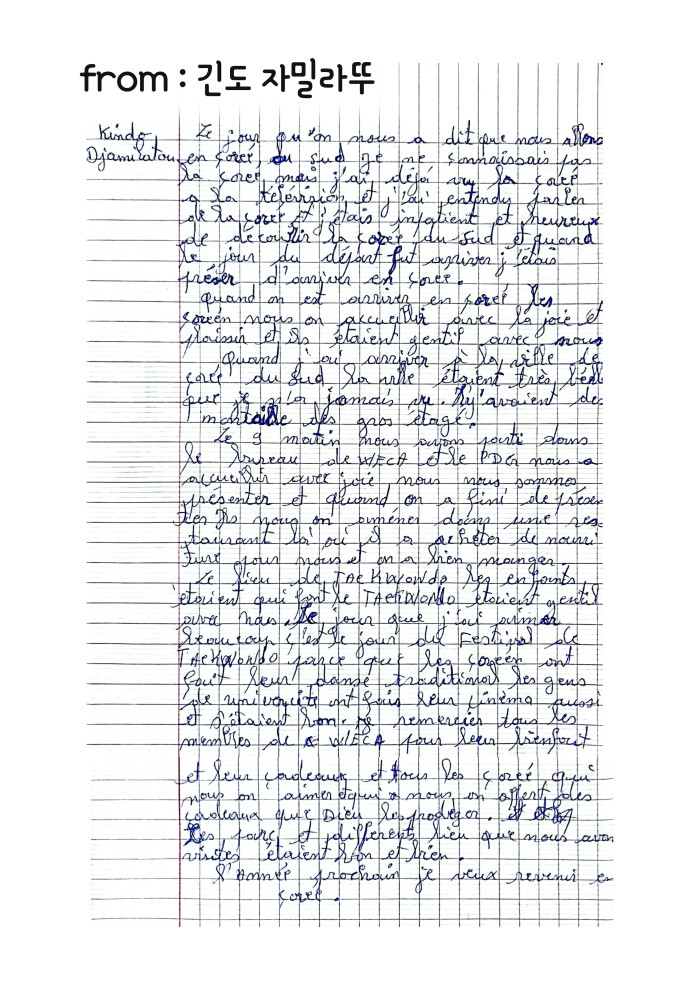 from : 긴도 자밀라뚜
Kindo Le jour qu'on nous a dit que nous allons
Djamilatou en çoreé, du sud je ne çonnaissais pas
la çoreé mais j'ai dejà vu la çoreé
a la télévision et j'ai entendu parler
de la çoreé et j'étais inpatient et heureux
de découvrir la çoreé du Sud et quand
le jour du départ fut arriver j'étais
présser d'arriver en çoreé.
Quand on est arriver en çoreé les
çoréen nous on accueillir avec la joie et
plaissir et ils étaient gentif avec nous
Quand j'ai arriver à la ville de
çoreé du Sud la ville étaient très
que je n'ai jamais vu. Ily'avaient de
des gros étage.
Le 9 matin nous avons parti dans
le bureau de WECA et le PDG nous a
accueillir avec joie nous nous sommes
présenter et quand on a fini de présen
ter Ils nous on améner dans une res-
taurant là où il a acheter de nourri
ture pour nous et on a bien manger.
Le lieu de TAEKWONDO les enfants
étaient qui font le TAEKWONDO étaient gentil
avec nous. Le jour que j'ai aimer
beaucoup ç'est le jour du Festival de
TAEKWONDO parce que les çoréen ont
fait leur danse traditional les gens
de ont fais leur cinéma aussi
et s'étaient bon. Je remercier tous les
membres de WECA pour leur bienfait
et leur cadeaux et tous les çoreé qui
nous on aimer et qui nous on offert des
cadeaux que Dieu les
Les parc et différents lieu que nous avon
visités étaient bon et bien.
l'Année prochain je veux revenir en
çoreé.